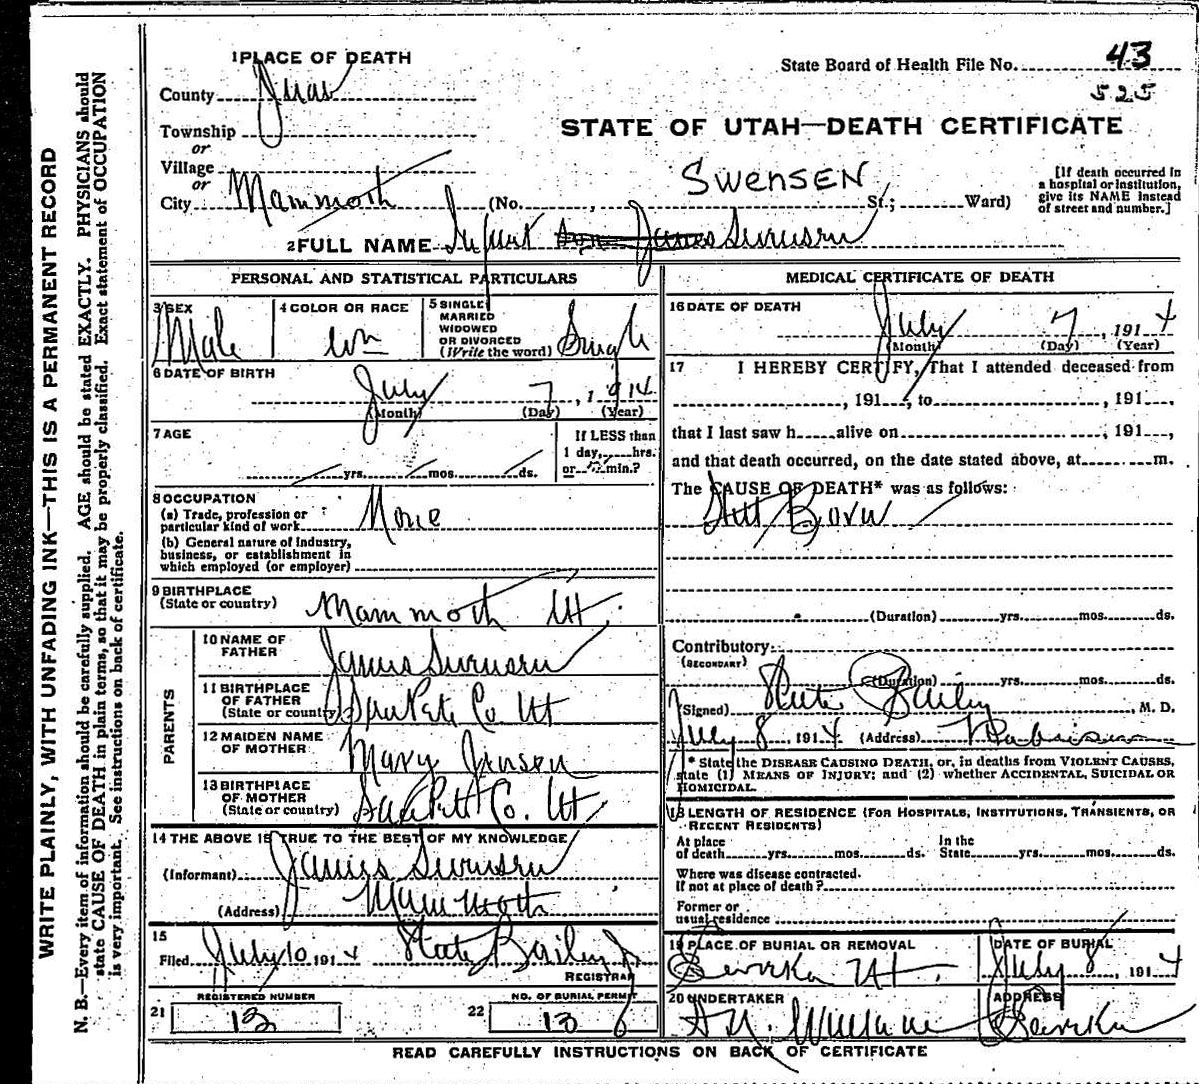 WRITE PLAINLY, WITH UNFADING INK—THIS IS A PERMANENT RECORD
N. B.—Every item of information should be carefully supplied. AGE should be stated EXACTLY. PHYSICIANS should
state CAUSE OF DEATH in plain terms, so that it may be properly classified. Exact statement of OCCUPATION
is very important. See instructions on back of certificate.
1 PLACE OF DEATH
County Juab
Township
or
Village
or
City Mammoth (No. , St.; Ward)
State Board of Health File No. 43
525
STATE OF UTAH—DEATH CERTIFICATE
SWENSEN
[If death occurred in
a hospital or institution,
give its NAME instead
of street and number.]
2 FULL NAME Infant James Swensen
PERSONAL AND STATISTICAL PARTICULARS
3 SEX Male
4 COLOR OR RACE Wh
5 SINGLE
MARRIED
WIDOWED
OR DIVORCED
(Write the word) Single
6 DATE OF BIRTH
July 7, 1914
(Month) (Day) (Year)
7 AGE
yrs. mos. ds.
If LESS than
1 day, hrs.
or min.?
8 OCCUPATION
(a) Trade, profession or
particular kind of work None
(b) General nature of industry,
business, or establishment in
which employed (or employer)
9 BIRTHPLACE
(State or country) Mammoth Ut.
PARENTS
10 NAME OF
FATHER James Swensen
11 BIRTHPLACE
OF FATHER
(State or country) SanPete Co. Ut
12 MAIDEN NAME
OF MOTHER Mary Jensen
13 BIRTHPLACE
OF MOTHER
(State or country) SanPete Co. Ut.
14 THE ABOVE IS TRUE TO THE BEST OF MY KNOWLEDGE
(Informant) James Swensen
(Address) Mammoth
15
Filed July 10 1914 Steele Bailey Jr
REGISTRAR
REGISTERED NUMBER
21 13
NO. OF BURIAL PERMIT
22 13
MEDICAL CERTIFICATE OF DEATH
16 DATE OF DEATH
July 7, 1914
(Month) (Day) (Year)
17 I HEREBY CERTIFY, That I attended deceased from
, 191 , to , 191 ,
that I last saw h alive on , 191 ,
and that death occurred, on the date stated above, at m.
The CAUSE OF DEATH* was as follows:
Still Born
(Duration) yrs. mos. ds.
Contributory
(SECONDARY)
(Duration) yrs. mos. ds.
(Signed) Steele Bailey, M. D.
July 8, 1914 (Address) Robinson
* State the DISEASE CAUSING DEATH, or, in deaths from VIOLENT CAUSES,
state (1) MEANS OF INJURY; and (2) whether ACCIDENTAL, SUICIDAL OR
HOMICIDAL.
18 LENGTH OF RESIDENCE (FOR HOSPITALS, INSTITUTIONS, TRANSIENTS, OR
RECENT RESIDENTS)
At place
of death yrs. mos. ds. In the
State yrs. mos. ds.
Where was disease contracted.
If not at place of death?
Former or
usual residence
19 PLACE OF BURIAL OR REMOVAL
Eureka Ut.
DATE OF BURIAL
July 8, 1914
20 UNDERTAKER
ADDRESS
Eureka
READ CAREFULLY INSTRUCTIONS ON BACK OF CERTIFICATE